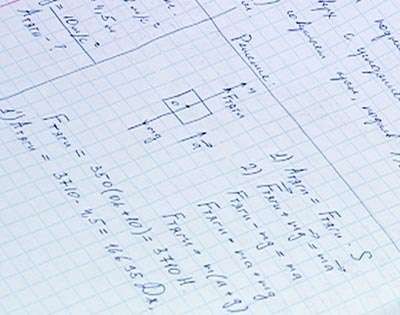 g = 10 м/с²
Aтяги - ?
Решение.
y
Fтяги
a
mg
1) Aтяги = Fтяги · S
2) Fтяги + mg = ma
Fтяги - mg = ma
Fтяги = ma + mg
Fтяги = m(a+g)
Fтяги = 350(0,6+10) = 3710 Н
1) Aтяги = 3710 · 4,5 = 16695 Дж.